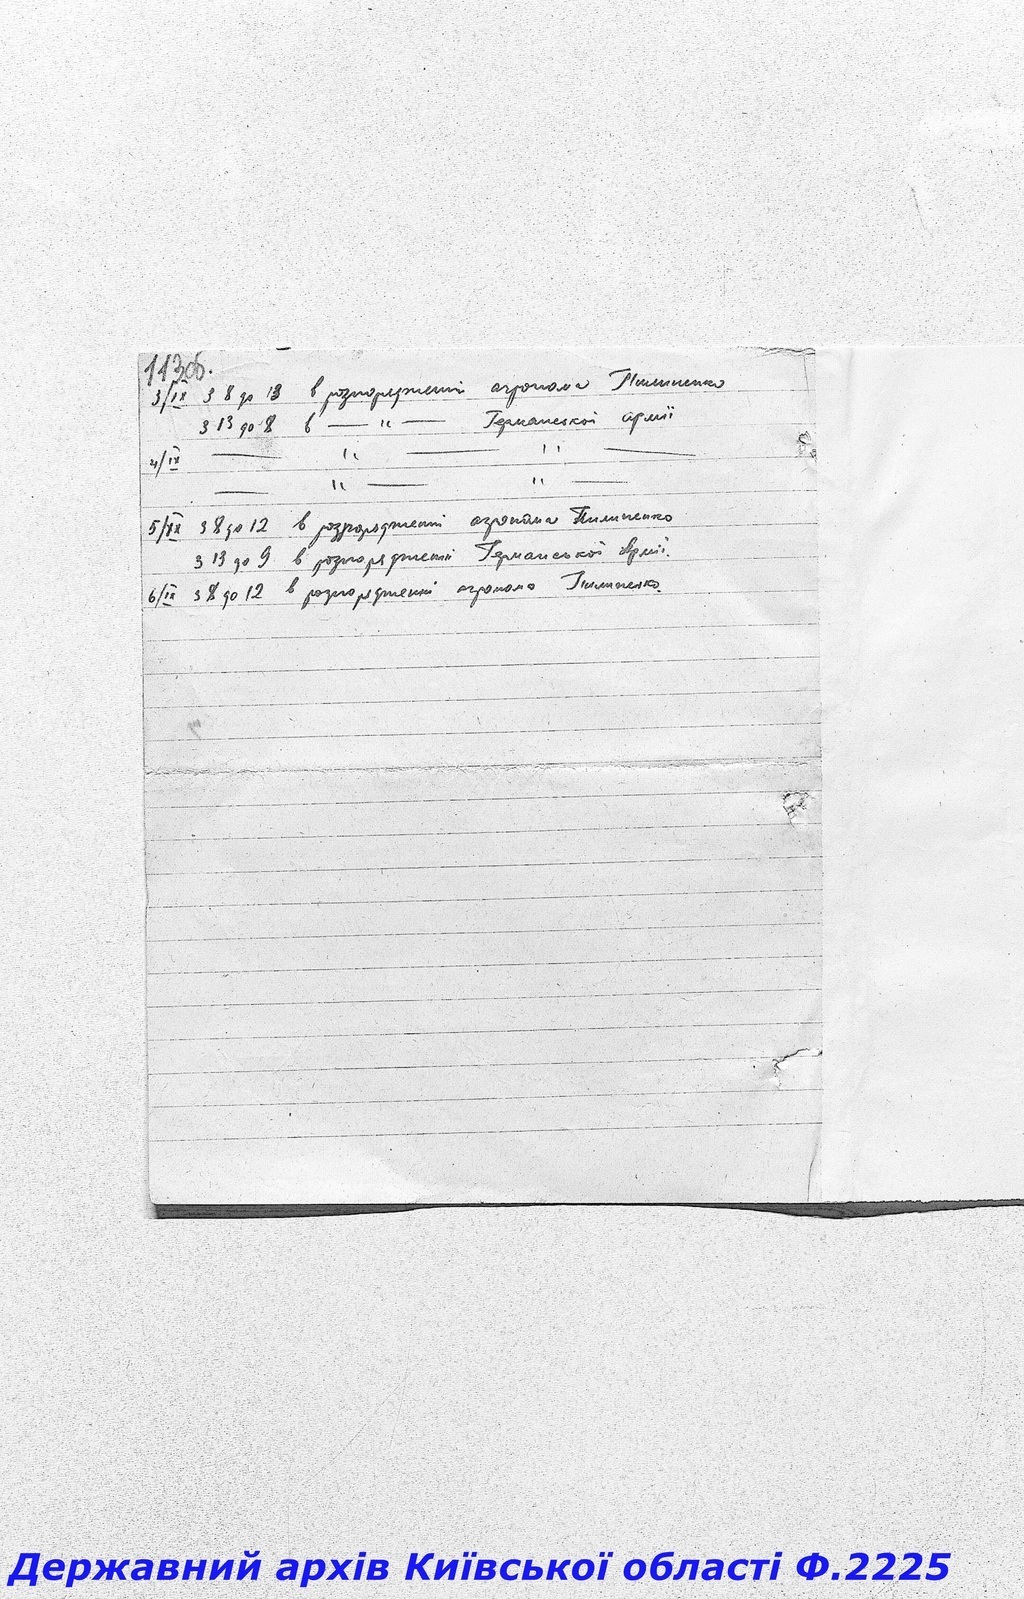 113об.
3/ІХ з 8 до 13 в розпорядженні агронома Пилипенко
з 13 до 8 в — " — Германської армії
4/ІХ — " — " —
— " — " —
5/ІХ з 8 до 12 в розпорядженні агронома Пилипенко
з 13 до 9 в розпорядженні Германської Армії.
6/ІХ з 8 до 12 в розпорядженні агронома Пилипенко.
Державний архів Київської області Ф.2225